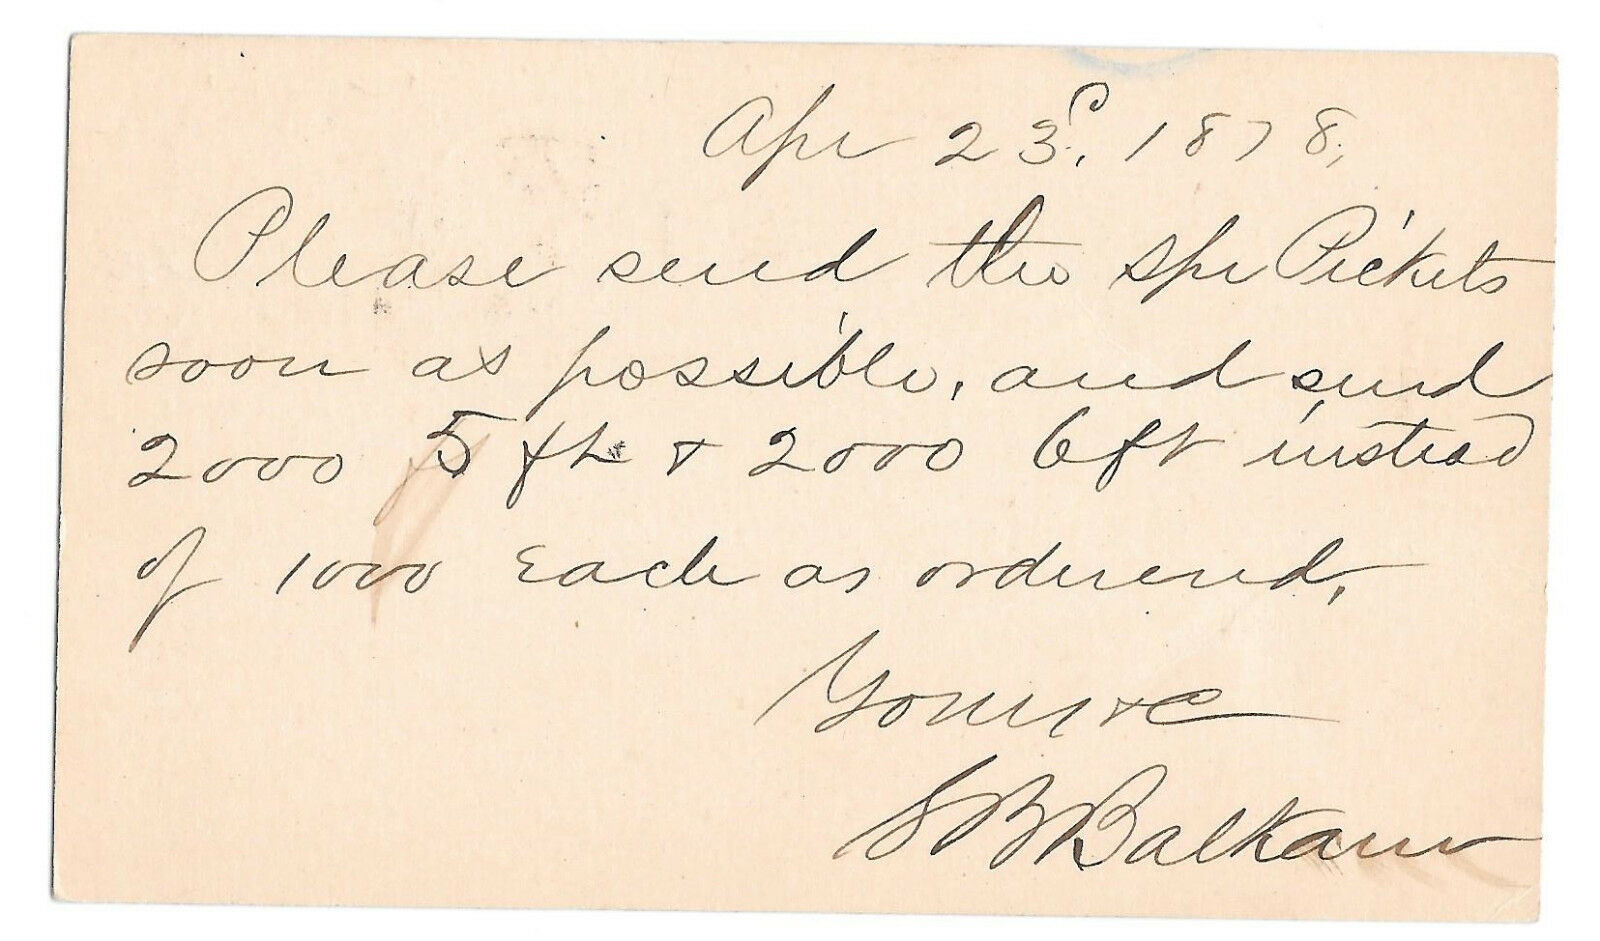 Apr 23d. 1878,
Please send the spr Pickets
soon as possible, and send
2000 5 ft & 2000 6 ft instead
of 1000 Each as orderend,
Yours &c
S B Balkam